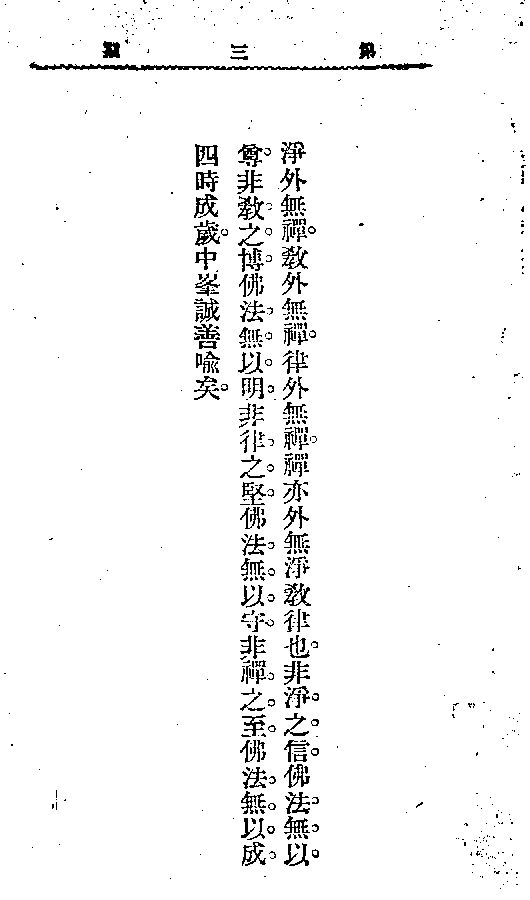 第三
淨外無禪。敎外無禪。律外無禪。禪亦外無淨敎律也。非淨之信佛法無以
尊。非敎之博佛法無以明。非律之堅佛法無以守。非禪之至佛法無以成。
四時成歲。中峯誠善喻矣。